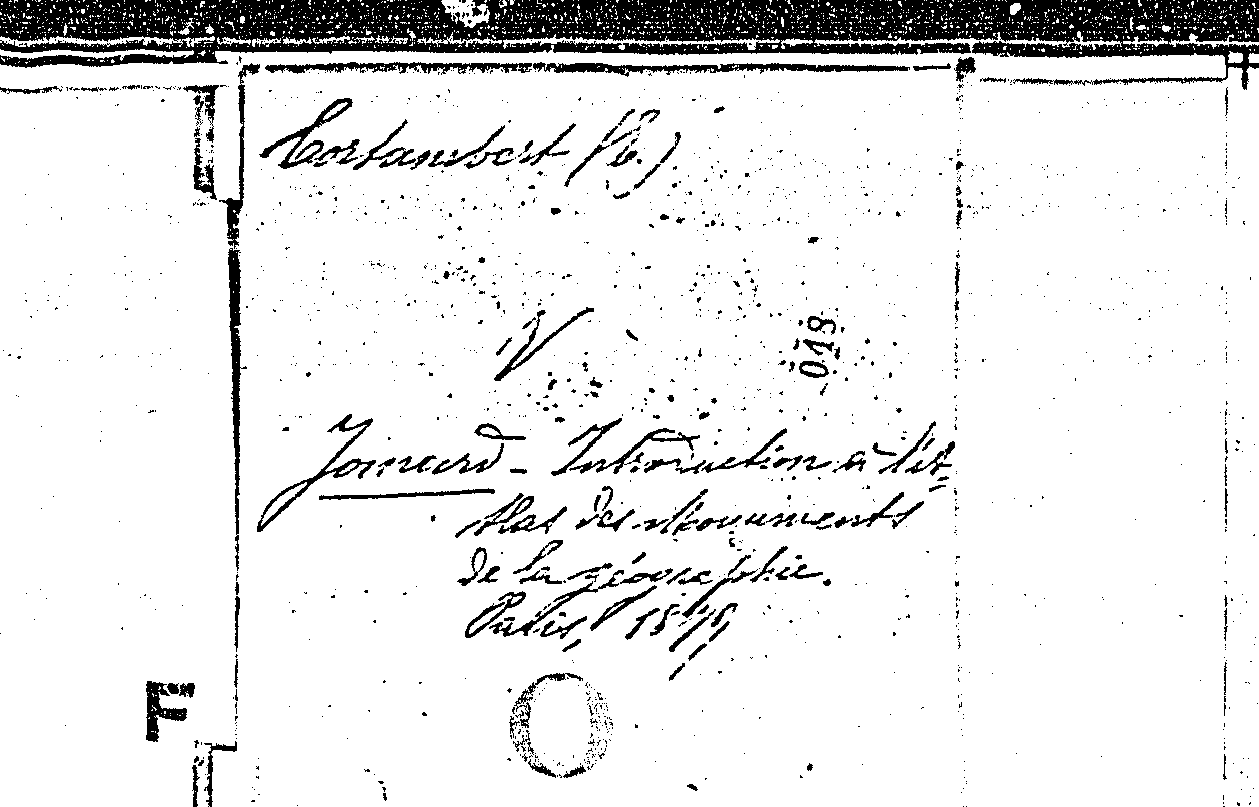 Cortambert (E.)
V
018
Jomard - Introduction à l'at-
tlas des Monuments
de la géographie.
Paris, 1879,
F